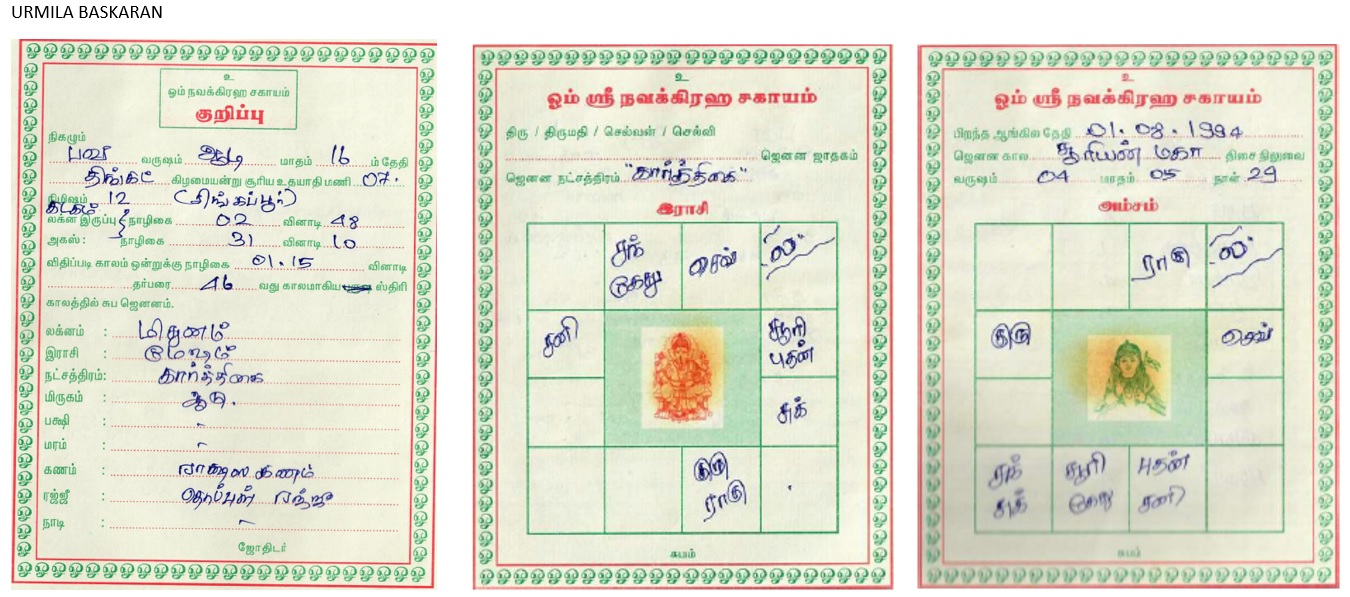 URMILA BASKARAN
உ
ஓம் நவக்கிரஹ சகாயம்
குறிப்பு
நிகழும்
பவ வருஷம் ஆடி மாதம் 16 ம் தேதி
திங்கட் கிழமையன்று சூரிய உதயாதி மணி 07.
நிமிஷம் 12 (சிங்கப்பூர்)
கடகம்
லக்ன இருப்பு நாழிகை 02 வினாடி 48
அகஸ் : நாழிகை 31 வினாடி 10
விதிப்படி காலம் ஒன்றுக்கு நாழிகை 01.15 வினாடி
தர்பரை 46 வது காலமாகிய ஸ்திரி
காலத்தில் சுப ஜெனனம்.
லக்னம் : மிதுனம்
இராசி : மேஷம்
நட்சத்திரம் : கார்த்திகை
மிருகம் : ஆடு.
பக்ஷி : -
மரம் : -
கணம் : ராக்ஷஸ கணம்
ரஜ்ஜீ : தொப்புள் ரஜ்ஜு
நாடி : -
ஜோதிடர்
உ
ஓம் ஸ்ரீ நவக்கிரஹ சகாயம்
திரு / திருமதி / செல்வன் / செல்வி
ஜெனன ஜாதகம்
ஜெனன நட்சத்திரம் "கார்த்திகை"
இராசி
சந் செவ் ல
கேது
சனி சூரி
புதன்
சுக்
குரு
ராகு
சுபம்
உ
ஓம் ஸ்ரீ நவக்கிரஹ சகாயம்
பிறந்த ஆங்கில தேதி 01.08.1994
ஜெனன கால சூரியன் மகா திசை நிலுவை
வருஷம் 04 மாதம் 05 நாள் 29
அம்சம்
ராகு ல
குரு செவ்
சந் சூரி புதன்
சுக் கேது சனி
சுபம்